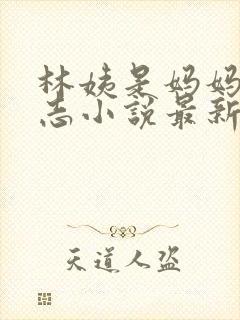 林姨是妈妈
志小说最新
天道人盗